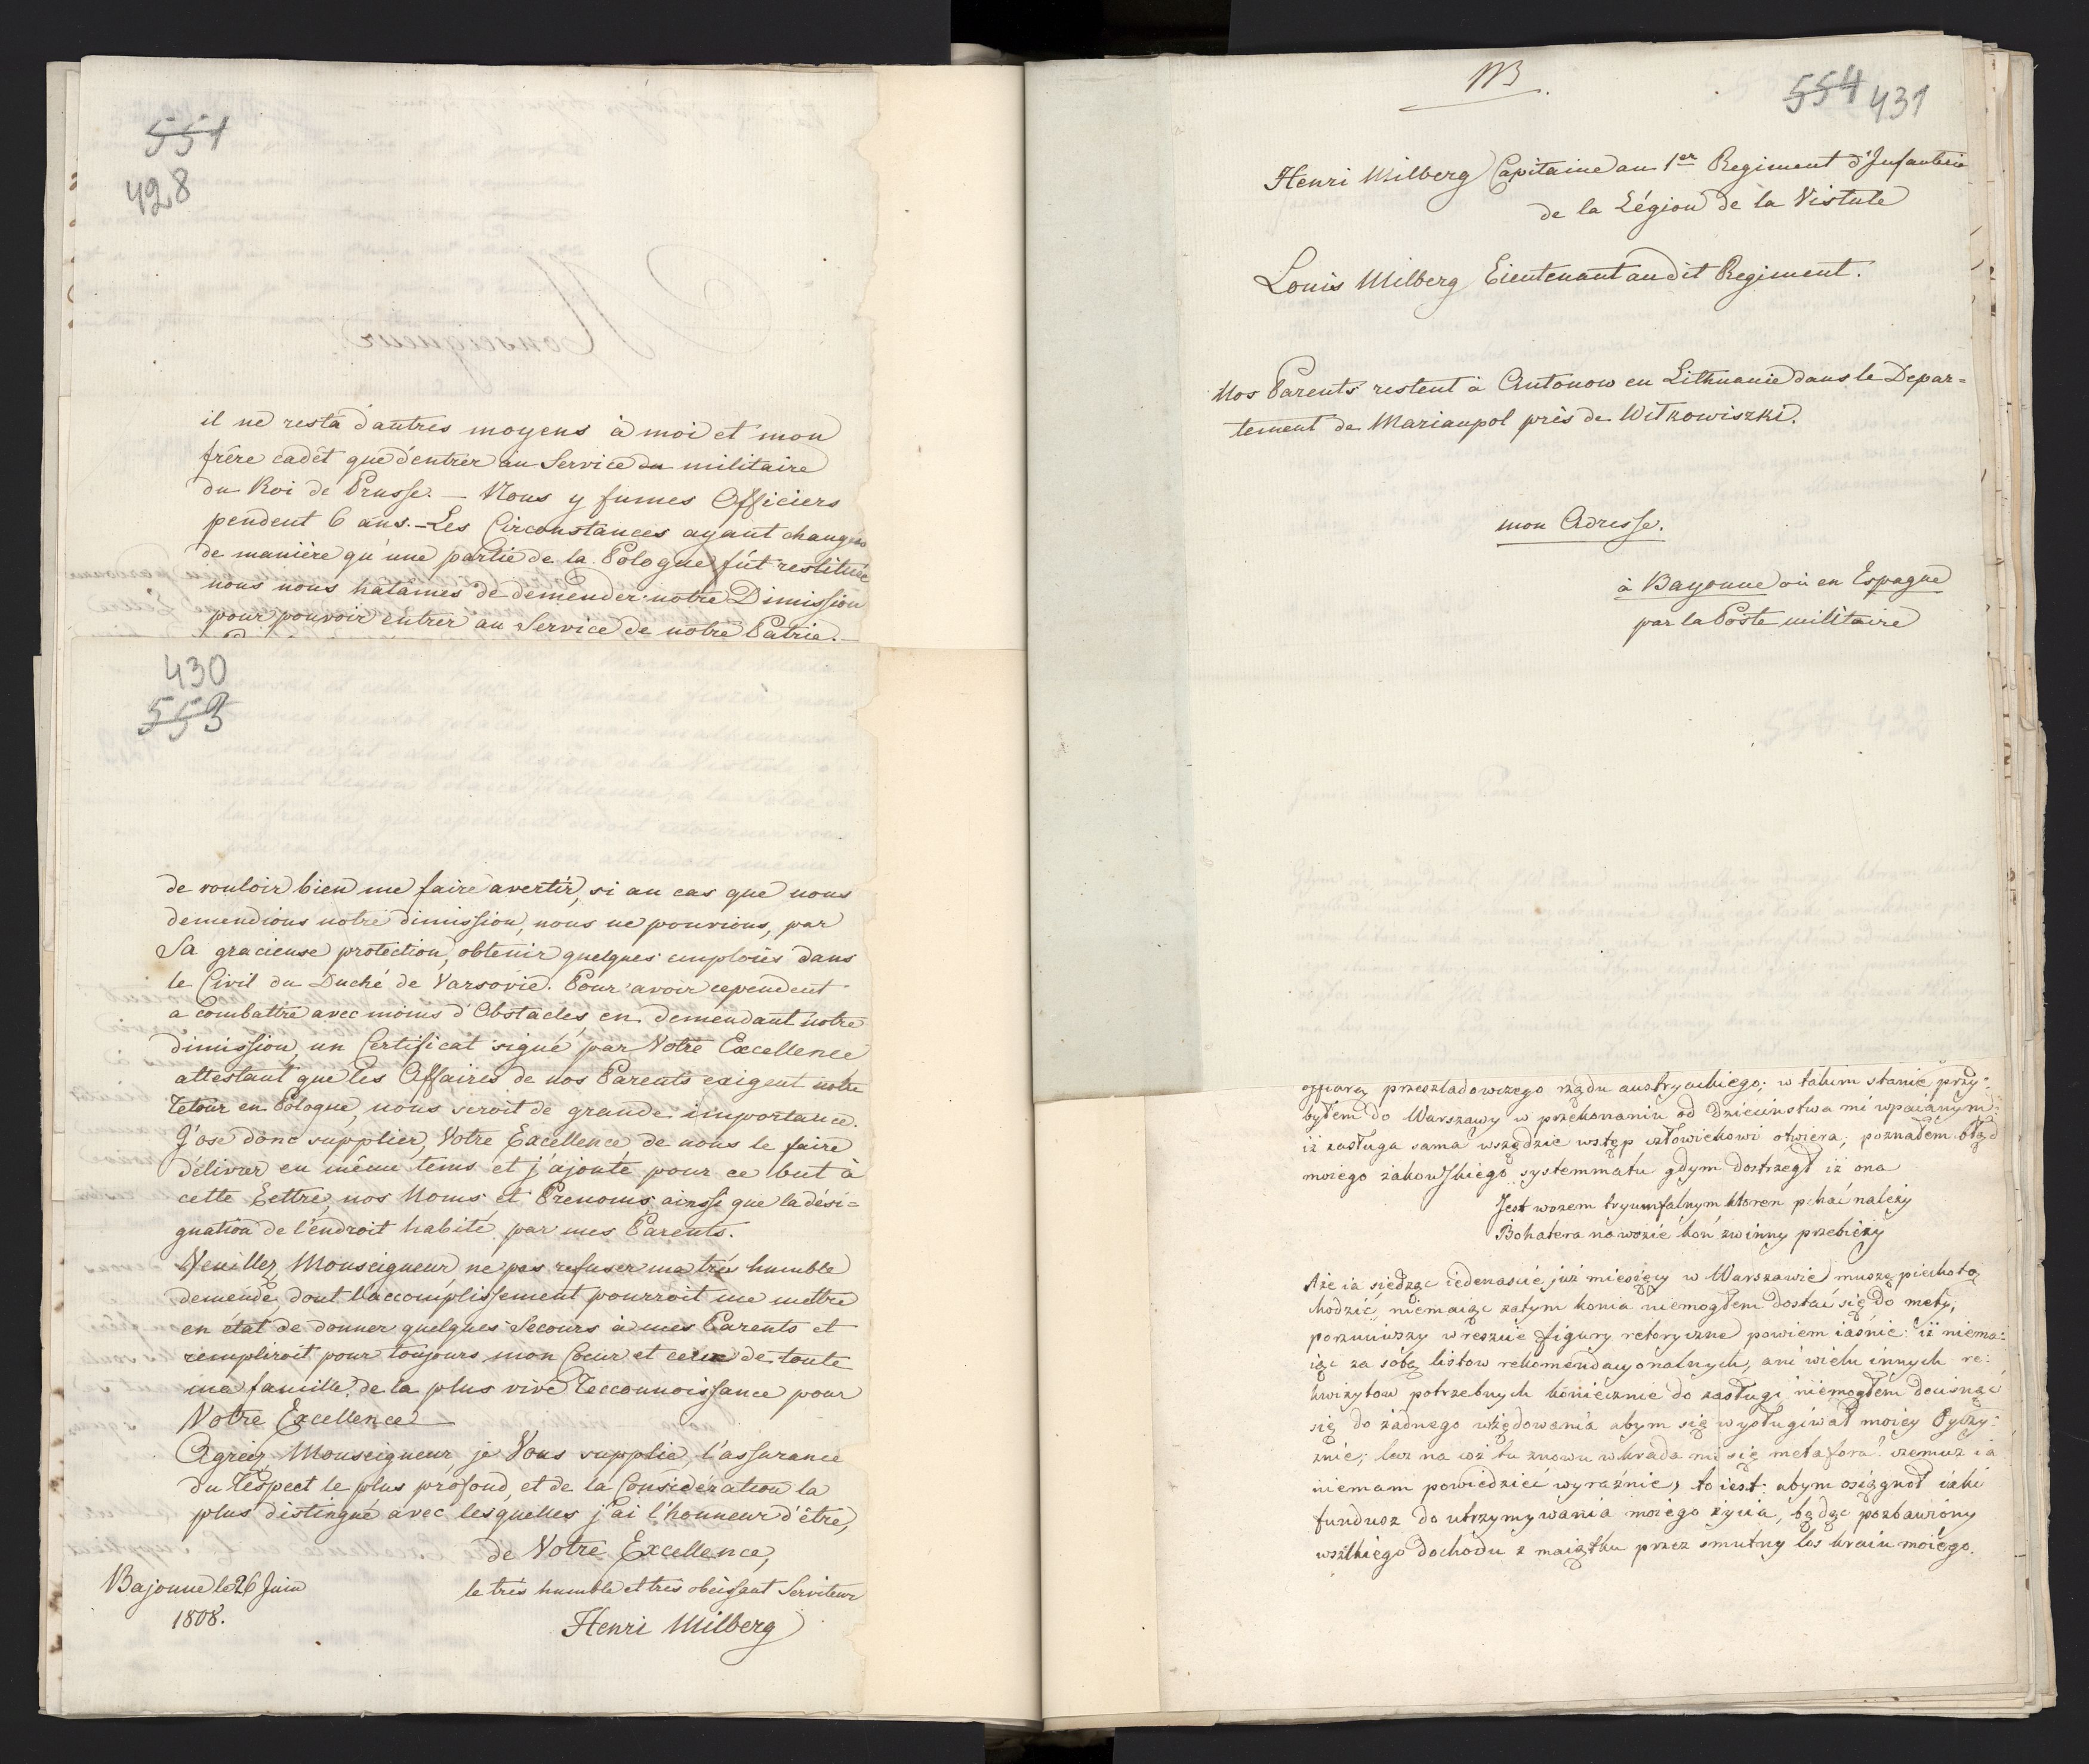 551
428
il ne resta d'autres moyens à moi et mon
frère cadèt que d'entrer au Service du militaire
du Roi de Prusse. — Nous y fumes Officiers
pendent 6 ans. — Les Circonstances ayant changées
de manière qu'une partie de la Pologne fût restituée
nous nous hatâmes de demender notre Dimission
pour pouvoir entrer au Service de notre Patrie. —
430
553
de vouloir bien me faire avertir, si au cas que nous
demendions notre dimission, nous ne pourrions, par
Sa gracieuse protection, obtenir quelques emploiés dans
le Civil du Duché de Varsovie. Pour avoir cependent
a combattre avec moins d'Obstacles, en demendant notre
dimission, un Certificat signé par Votre Excellence
attestant que les Affaires de nos Parents exigent notre
retour en Pologne, nous seroit de grande importance.
J'ose donc supplier, Votre Excellence de nous le faire
délivrer en même tems et j'ajoute pour ce but à
cette Lettre, nos Noms et Prenoms, ainsi que la dési=
gnation de l'endroit habité par mes Parents.
Veuillez, Monseigneur, ne pas refuser ma très humble
demende, dont l'accomplissement pourroit me mettre
en état de donner quelques Secours à mes Parents et
rempliroit pour toujours mon Coeur et celui de toute
ma famille, de la plus vive reconnoissance pour
Votre Excellence —
Agréez, Monseigneur, je Vous supplie, l'assurance
du respect le plus profond, et de la Considération la
plus distingué avec lesquelles j'ai l'honneur d'être,
de Votre Excellence,
Bajonne le 26 Juin
1808.
le très humble et très obéissant Serviteur
Henri Milberg
NB.
554 431
Henri Milberg Capitaine au 1er Regiment d'Infanterie
de la Légion de la Vistule
Louis Milberg Lieutenant au dit Regiment.
Nos Parents restent à Antonow en Lithuanie dans le Depar=
tement de Mariaupol près de Witkowiszki.
mon Adresse.
à Bayonne où en Espagne
par la Poste militaire
offiarą przeszladowczego rządu austryackiego; w takim stanie przy=
byłem do Warszawy w przekonaniu od dzieciństwa mi wpaianym:
iż zasługa sama wszędzie wstęp człowiekowi otwiera; poznałem błąd
moiego żakowskiego systemmatu gdym dostrzegł iż ona
Jest wozem tryumfalnym ktoren pchać należy
Bohatera na wozie koń zwinny przebieży
Aże ia siedząc iedenaście już miesięcy w Warszawie muszę piechotą
chodzić, niemaiąc zatym konia niemogłem dostać się do mety;
porzuciwszy w reszcie figury retoryczne powiem iaśnie: iż niema=
iąc za sobą listow rekomendacyonalnych, ani wielu innych re:
kwizytow potrzebnych koniecznie do zasługi niemogłem docisnąć
się do żadnego urzędowania abym się wysługiwał moiey Oyczy:
znie; lecz na coż tu znowu wkrada mi się metafora? czemuż ia
niemam powiedzieć wyraźnie, to iest: abym osiągnoł iaki
fundusz do utrzymywania moiego życia, będąc pozbawiony
wszelkiego dochodu z maiątku przez smutny los kraiu moiego.